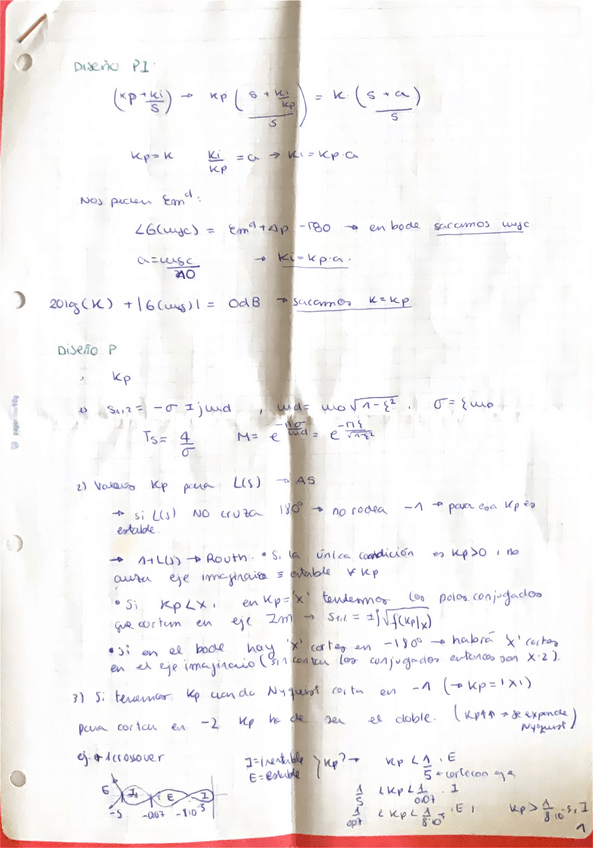 DISEÑO PI:
(Kp + Ki/S) → Kp ( (S + Ki/Kp)/S ) = K · (S + a)/S
Kp = K   Ki/Kp = a → Ki = Kp·a
Nos piden ξm^d:
∠G(ωgc) = ξm^d + Δp - 180 → en bode sacamos ωgc
a = ωgc/10 → Ki = Kp·a.
20lg(K) + |G(ωg)| = 0dB → sacamos K = Kp
DISEÑO P
Kp
1) S1,2 = -σ ± jωd , ωd = ωo √(1-ξ²) , σ = ξωo
Ts = 4/σ   M = e^(-πσ/ωd) = e^(-πξ/√(1-ξ²))
2) Valores Kp para L(s) → AS
→ Si L(s) NO cruza 180º → no rodea -1 → para esa Kp es
estable.
→ 1+L(s) → Routh. • Si la única condición es Kp>0, no
cruza eje imaginario ≡ estable ∀ Kp
• Si Kp<X, en Kp='x' tendremos los polos conjugados
que cortan en eje Im → S1,2 = ±j√(f(Kp)x)
• Si en el bode hay 'x' cortes en -180º → habrá 'x' cortes
en el eje imaginario (sin contar los conjugados entonces son x·2).
3) Si tenemos Kp cuando Nyquist corta en -1 (→ Kp=|x|)
para cortar en -2 Kp ha de ser el doble. (Kp↑↑ → se expande
Nyquist)
ej. 4 crossover   I=Inestable   Kp? → Kp < 1/5 . E
E=Estable   ← corte con eje
E I E I   1/5 < Kp < 1/0.07 . I
-5 -0.07 -8·10^-5   1/0.07 < Kp < 1/8·10^-5 . E ,   Kp > 1/8·10^-5 , I
1